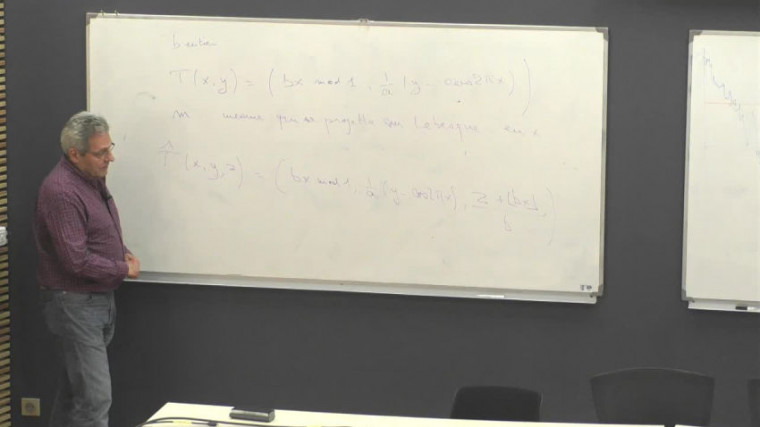 b entier
T(x,y) = ( bx mod 1, 1/a (y - cos 2πx) )
m mesure qui se projette sur Lebesgue en x
T̂(x,y,z) = ( bx mod 1, 1/a (y - cos 2πx), z + [bx] / b )